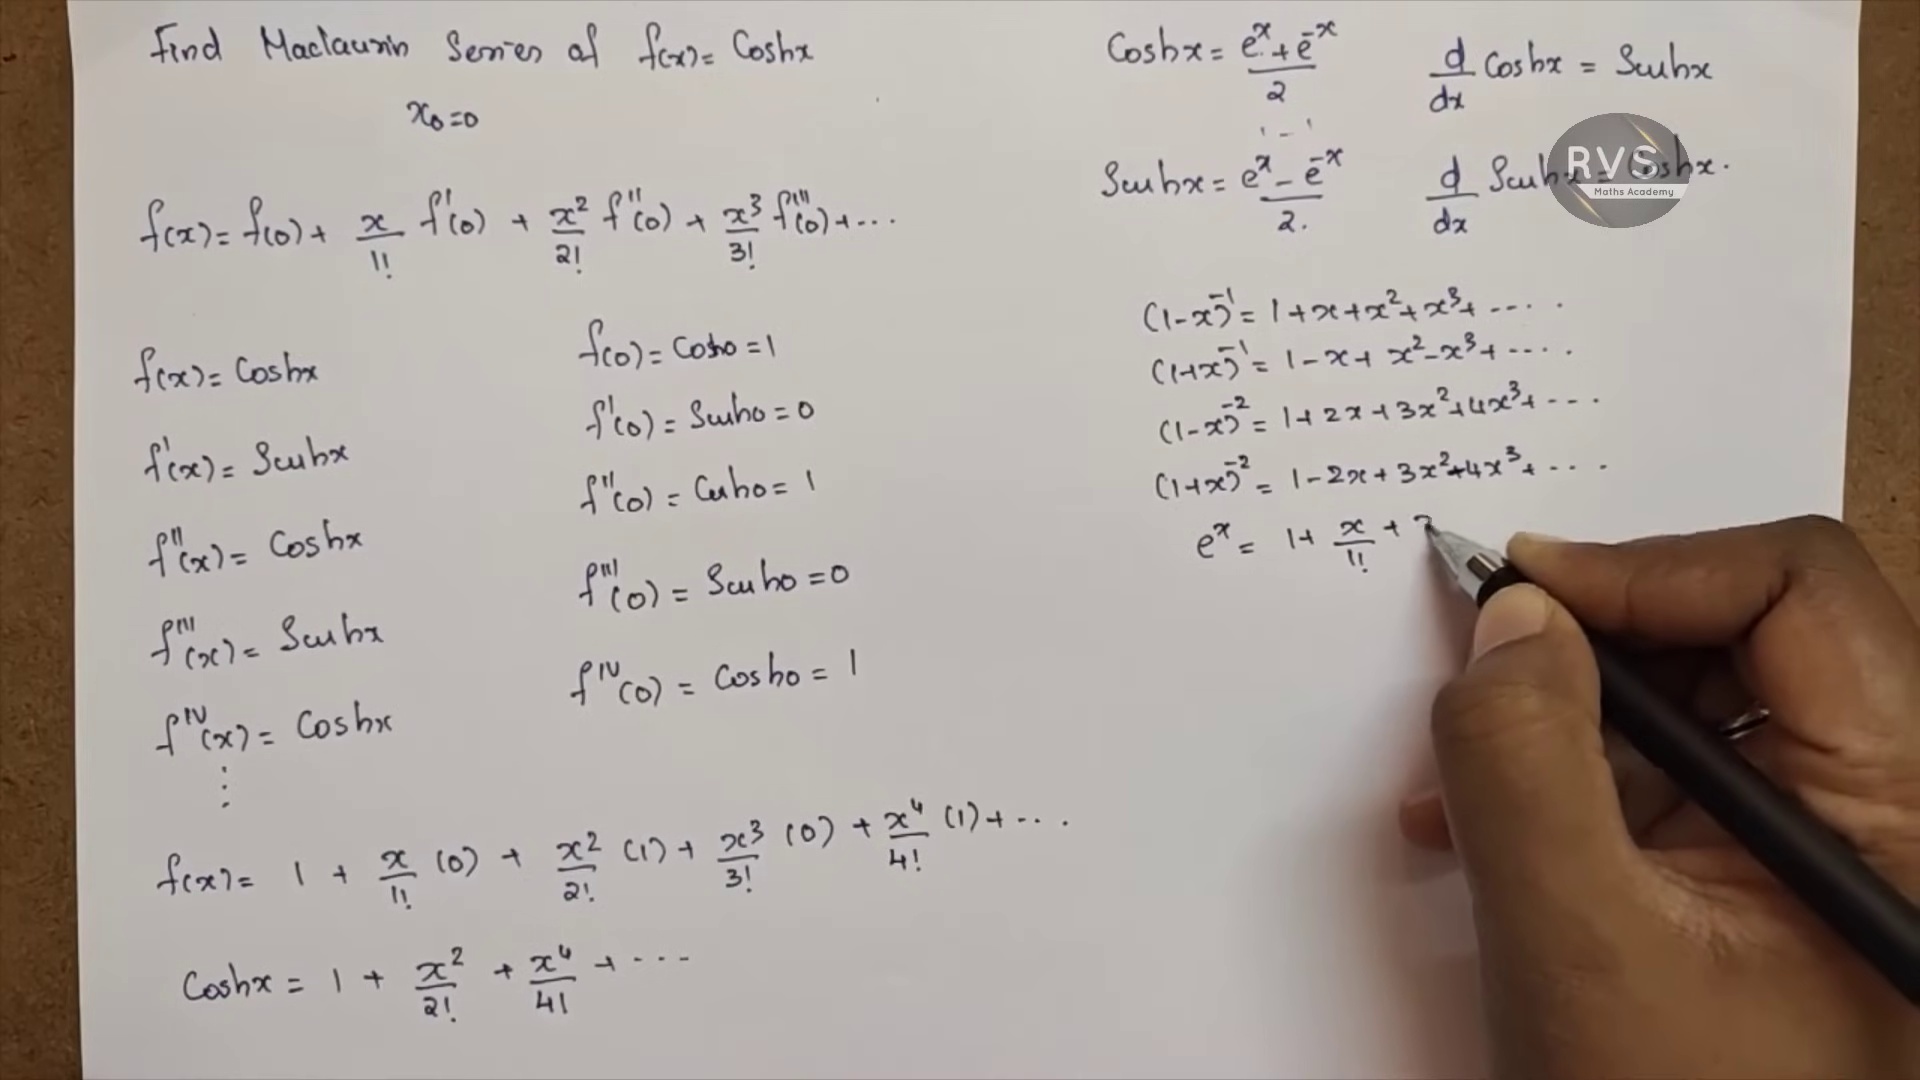 Find Maclaurin Series of f(x) = Coshx
x₀=0
f(x) = f(0) + x/1! f'(0) + x²/2! f''(0) + x³/3! f'''(0) + ...
f(x) = Coshx
f(0) = Cosh0 = 1
f'(x) = Sinhx
f'(0) = Sinh0 = 0
f''(x) = Coshx
f''(0) = Cosh0 = 1
f'''(x) = Sinhx
f'''(0) = Sinh0 = 0
f^IV(x) = Coshx
f^IV(0) = Cosh0 = 1
⋮
f(x) = 1 + x/1! (0) + x²/2! (1) + x³/3! (0) + x⁴/4! (1) + ...
Coshx = 1 + x²/2! + x⁴/4! + ...
Coshx = (e^x + e^-x)/2
d/dx Coshx = Sinhx
Sinhx = (e^x - e^-x)/2.
d/dx Sinhx = Coshx.
RVS
Maths Academy
(1-x)^-1 = 1+x+x²+x³+ .....
(1+x)^-1 = 1-x+x²-x³+ ....
(1-x)^-2 = 1+2x+3x²+4x³+ ....
(1+x)^-2 = 1-2x+3x²-4x³+ ....
e^x = 1+ x/1! +